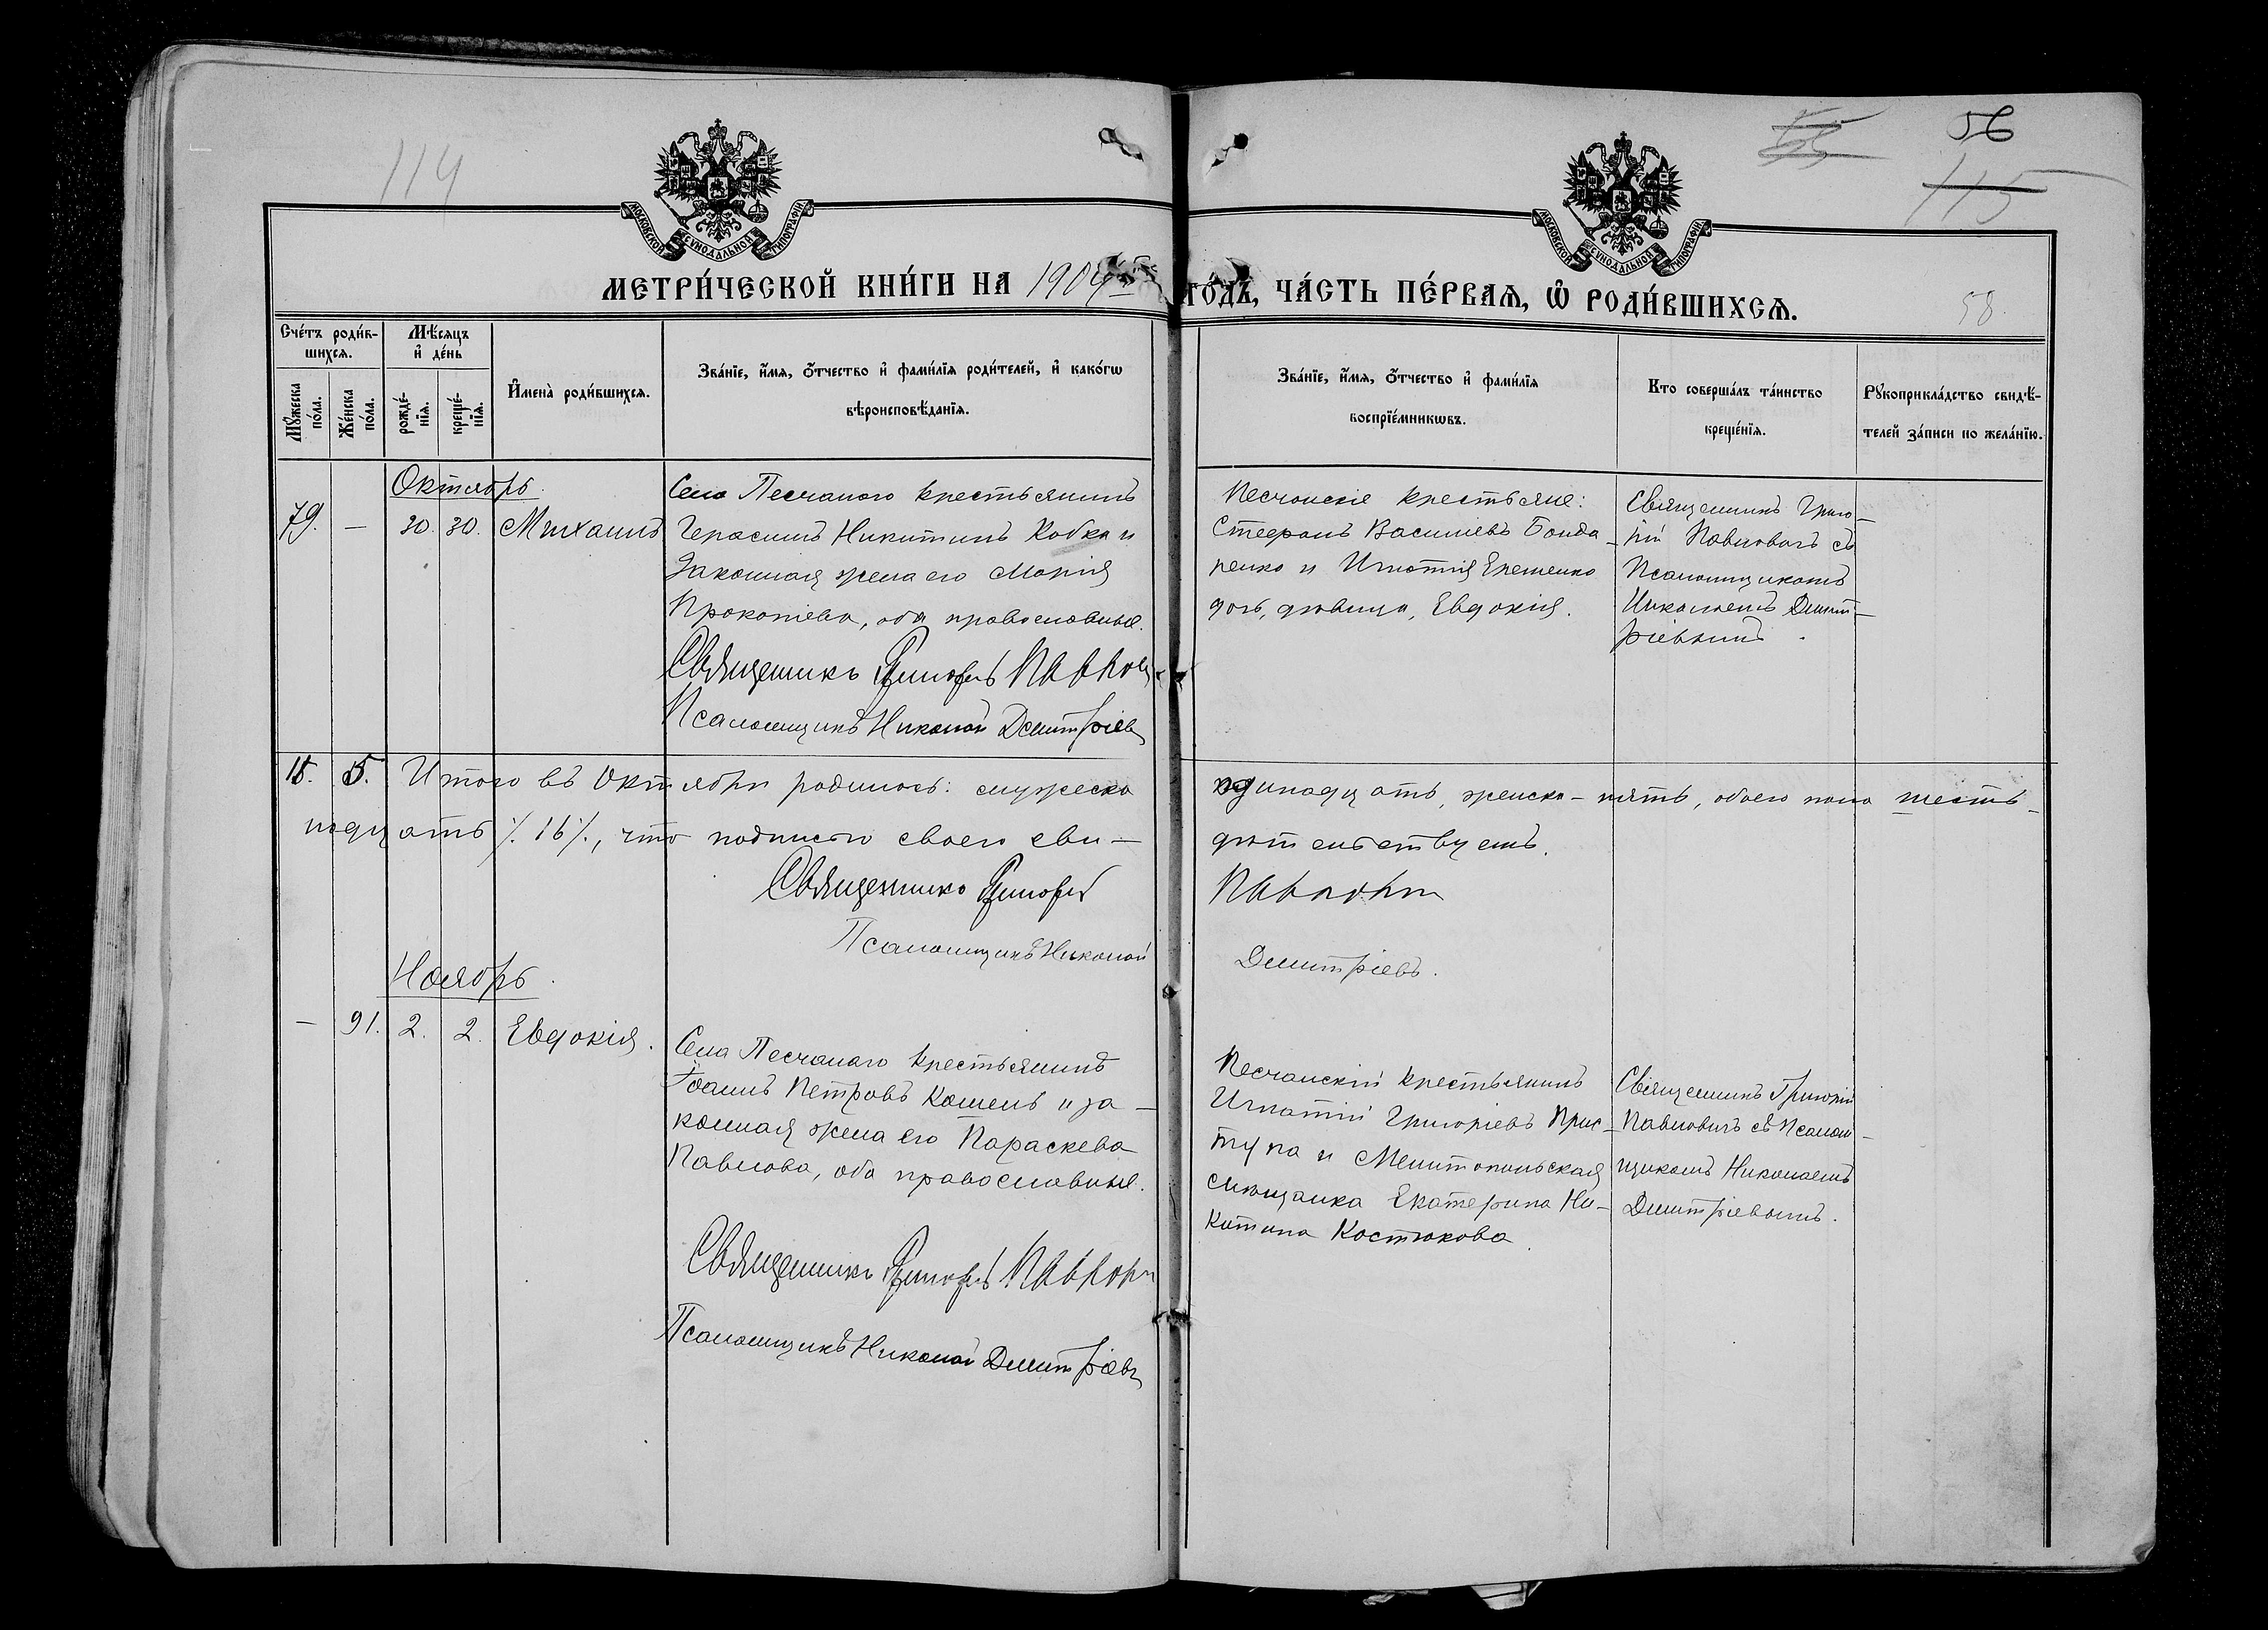 114
56
115
58.
МОСКОВСКОЙ СѴНОДАЛЬНОЙ ТИПОГРАФІИ
МОСКОВСКОЙ СѴНОДАЛЬНОЙ ТИПОГРАФІИ
МЕТРИ́ЧЕСКОЙ КНИ́ГИ НА 1904 ГО́ДЪ, ЧА́СТЬ ПЕ́РВАѦ, Ѡ҆ РОДИ́ВШИХСѦ.
Сче́тъ роди́в-
шихсѧ.
Мꙋ́жеска
по́ла.
Же́нска
по́ла.
Мѣ́сѧцъ
и҆ де́нь
рожде́-
нїѧ.
креще́-
нїѧ.
И҆мена̀ роди́вшихсѧ.
Зва́нїе, и҆́мѧ, ѻ҆́тчество и҆ фами́лїѧ роди́телей, и҆ како́гѡ
вѣроисповѣ́данїѧ.
Зва́нїе, и҆́мѧ, ѻ҆́тчество и҆ фами́лїѧ
воспрїе́мникѡвъ.
Кто соверша́лъ та́инство
креще́нїѧ.
Рꙋкоприкла́дство свидѣ́-
телей за́писи по жела́нїю.
Октябрь
79. — 30. 30. Михаилъ
Села Песчаного крестьянинъ
Герасимъ Никитинъ Кобка и
законная жена его Марія
Прокопіева, оба православные.
Священникъ Григорій Павлович
Псаломщикъ Николай Дмитріевъ
Песчанскіе крестьяне:
Стефанъ Васильевъ Бонда-
ренко и Игнатія Ерещенко
дочь, дѣвица, Евдокія.
Священникъ Григо-
рій Павловичъ съ
Псаломщикомъ
Николаемъ Дмит-
ріевымъ.
11. 5. Итого въ Октябрѣ родилось: мужеска одинадцать, женска – пять, обоего пола шесть-
надцать ·/. 16 ·/., что подписью своею сви-дѣтельствуемъ.
Священникъ Григорій Павлович
Псаломщикъ Николай Дмитріевъ.
Ноябрь.
— 91. 2. 2. Евдокія.
Села Песчанаго крестьянинъ
Іоаннъ Петровъ Кошель и за-
конная жена его Параскева
Павлова, оба православные.
Священникъ Григорій Павлович
Псаломщикъ Николай Дмитріевъ
Песчанскій крестьянинъ
Игнатій Григоріевъ Прис-
тупа и Мелитопольская
мѣщанка Екатерина Ни-
китина Костюкова.
Священникъ Григорій
Павловичъ съ Псалом-
щикомъ Николаемъ
Дмитріевымъ.